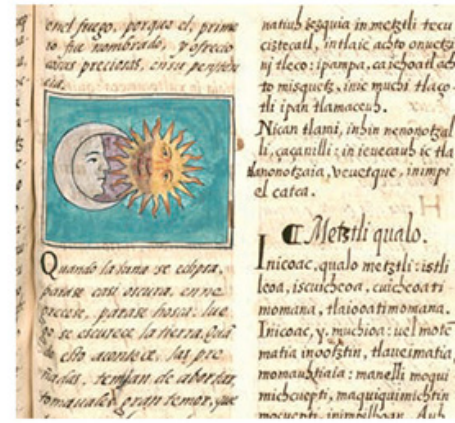 enel fuego, porque el, prime
ro fue nombrado, y ofrecio
cosas preciosas, en su peniten
cia.
Quando la luna se eclipsa,
parase casi oscura, enne
grecese, parase hosca: lue
go se escurece la tierra. Quā
do esto acontece, las pre
ñadas, temjan de abortar,
tomauales gran temor, que
natiuh iezquia in metztli tecu
ciztecatl, intlaic achto onuetzi
nj tleco: ipampa, ca ichoatl ach
to misquetz, inic muchi tlaço
tli ipan tlamaceuh.
Nican tlami, inhin nenonotzal
li, caçanilli: in ieuecauh ic tla
tlanonotzaia, veuetque, inimpi
el catca.
¶ Metztli qualo.
Inicoac, qualo metztli: istli
leoa, iscuicheoa, cuicheoati
momana, tlaiooatimomana.
Inicoac, y, muchioa: uel mote
matia inootztin, tlaueimatia
momauhtiaia: manelli moqui
michcuepti, maquiquimichtin
mocuepti, inimpilhoan. Auh